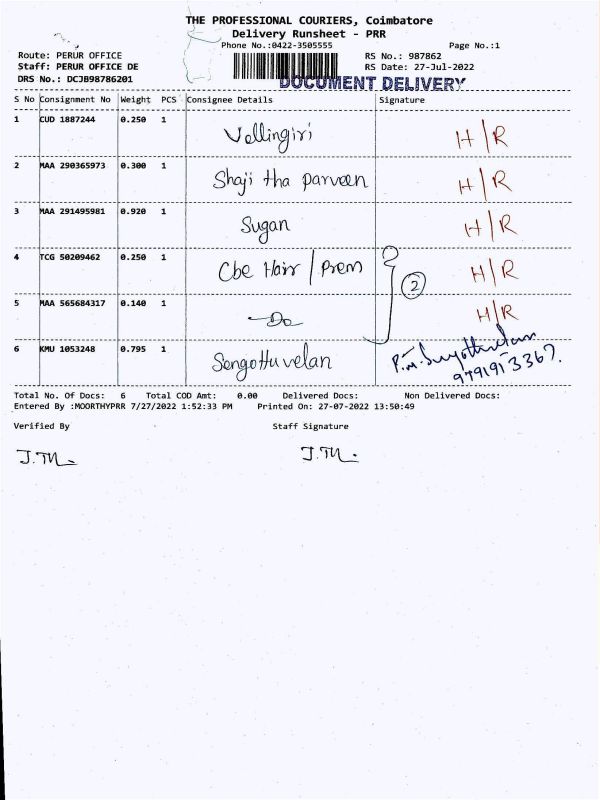 THE PROFESSIONAL COURIERS, Coimbatore
Delivery Runsheet - PRR
Phone No.:0422-3505555 Page No.:1
Route: PERUR OFFICE RS No.: 987862
Staff: PERUR OFFICE DE RS Date: 27-Jul-2022
DRS No.: DCJB98786201 DOCUMENT DELIVERY
S No Consignment No Weight PCS Consignee Details Signature
1 CUD 1887244 0.250 1 Vellingiri H/R
2 MAA 290365973 0.300 1 Shaji tha parveen H/R
3 MAA 291495981 0.920 1 Sugan H/R
4 TCG 50209462 0.250 1 Cbe Hair / Prem 2 H/R
5 MAA 565684317 0.140 1 Do H/R
6 KMU 1053248 0.795 1 Sengottuvelan
Total No. Of Docs: 6 Total COD Amt: 0.00 Delivered Docs: Non Delivered Docs:
Entered By :MOORTHYPRR 7/27/2022 1:52:33 PM Printed On: 27-07-2022 13:50:49
Verified By Staff Signature